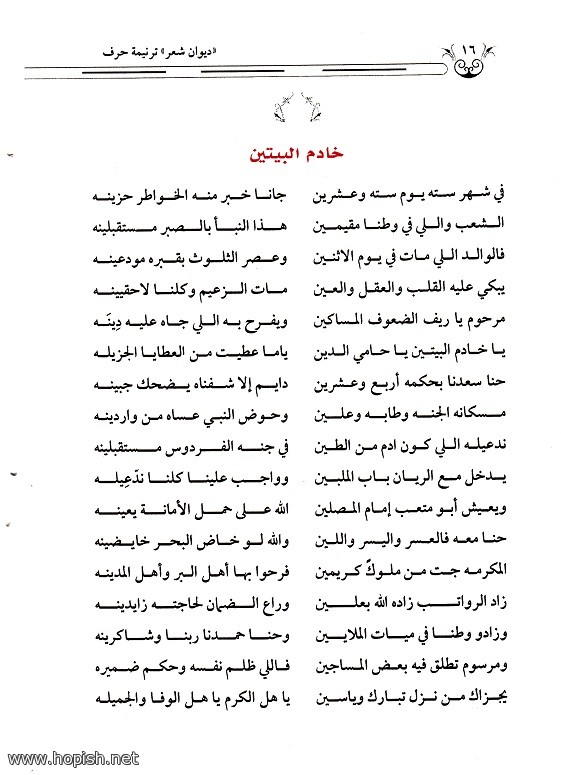 ١٦
«ديوان شعر» ترنيمة حرف
خادم البيتين
في شهر سته يوم سته وعشرين جانا خبر منه الخواطر حزينه
الشعب واللي في وطنا مقيمين هذا النبأ بالصبر مستقبلينه
فالوالد اللي مات في يوم الاثنين وعصر الثلوث بقبره مودعينه
يبكي عليه القلب والعقل والعين مات الزعيم وكلنا لاحقيينه
مرحوم يا ريف الضعوف المساكين ويفرح به اللي جاه عليه دِينَه
يا خادم البيتين يا حامي الدين ياما عطيت من العطايا الجزيله
حنا سعدنا بحكمه أربع وعشرين دايم إلا شفناه يضحك جبينه
مسكانه الجنه وطابه وعلين وحوض النبي عساه من واردينه
ندعيله اللي كون ادم من الطين في جنه الفردوس مستقبلينه
يدخل مع الريان باب الملبين وواجب علينا كلنا ندّعِيله
ويعيش أبو متعب إمام المصلين الله على حمل الأمانة يعينه
حنا معه فالعسر واليسر واللين والله لو خاض البحر خايضينه
المكرمه جت من ملوكٍ كريمين فرحوا بها أهل البر وأهل المدينه
زاد الرواتب زاده الله بعلين وراع الضمان لحاجته زايدينه
وزادو وطنا في ميات الملايين وحنا حمدنا ربنا وشاكرينه
ومرسوم تطلق فيه بعض المساجين فاللي ظلم نفسه وحكم ضميره
يجزاك من نزل تبارك وياسين يا هل الكرم يا هل الوفا والجميله
www.hopish.net